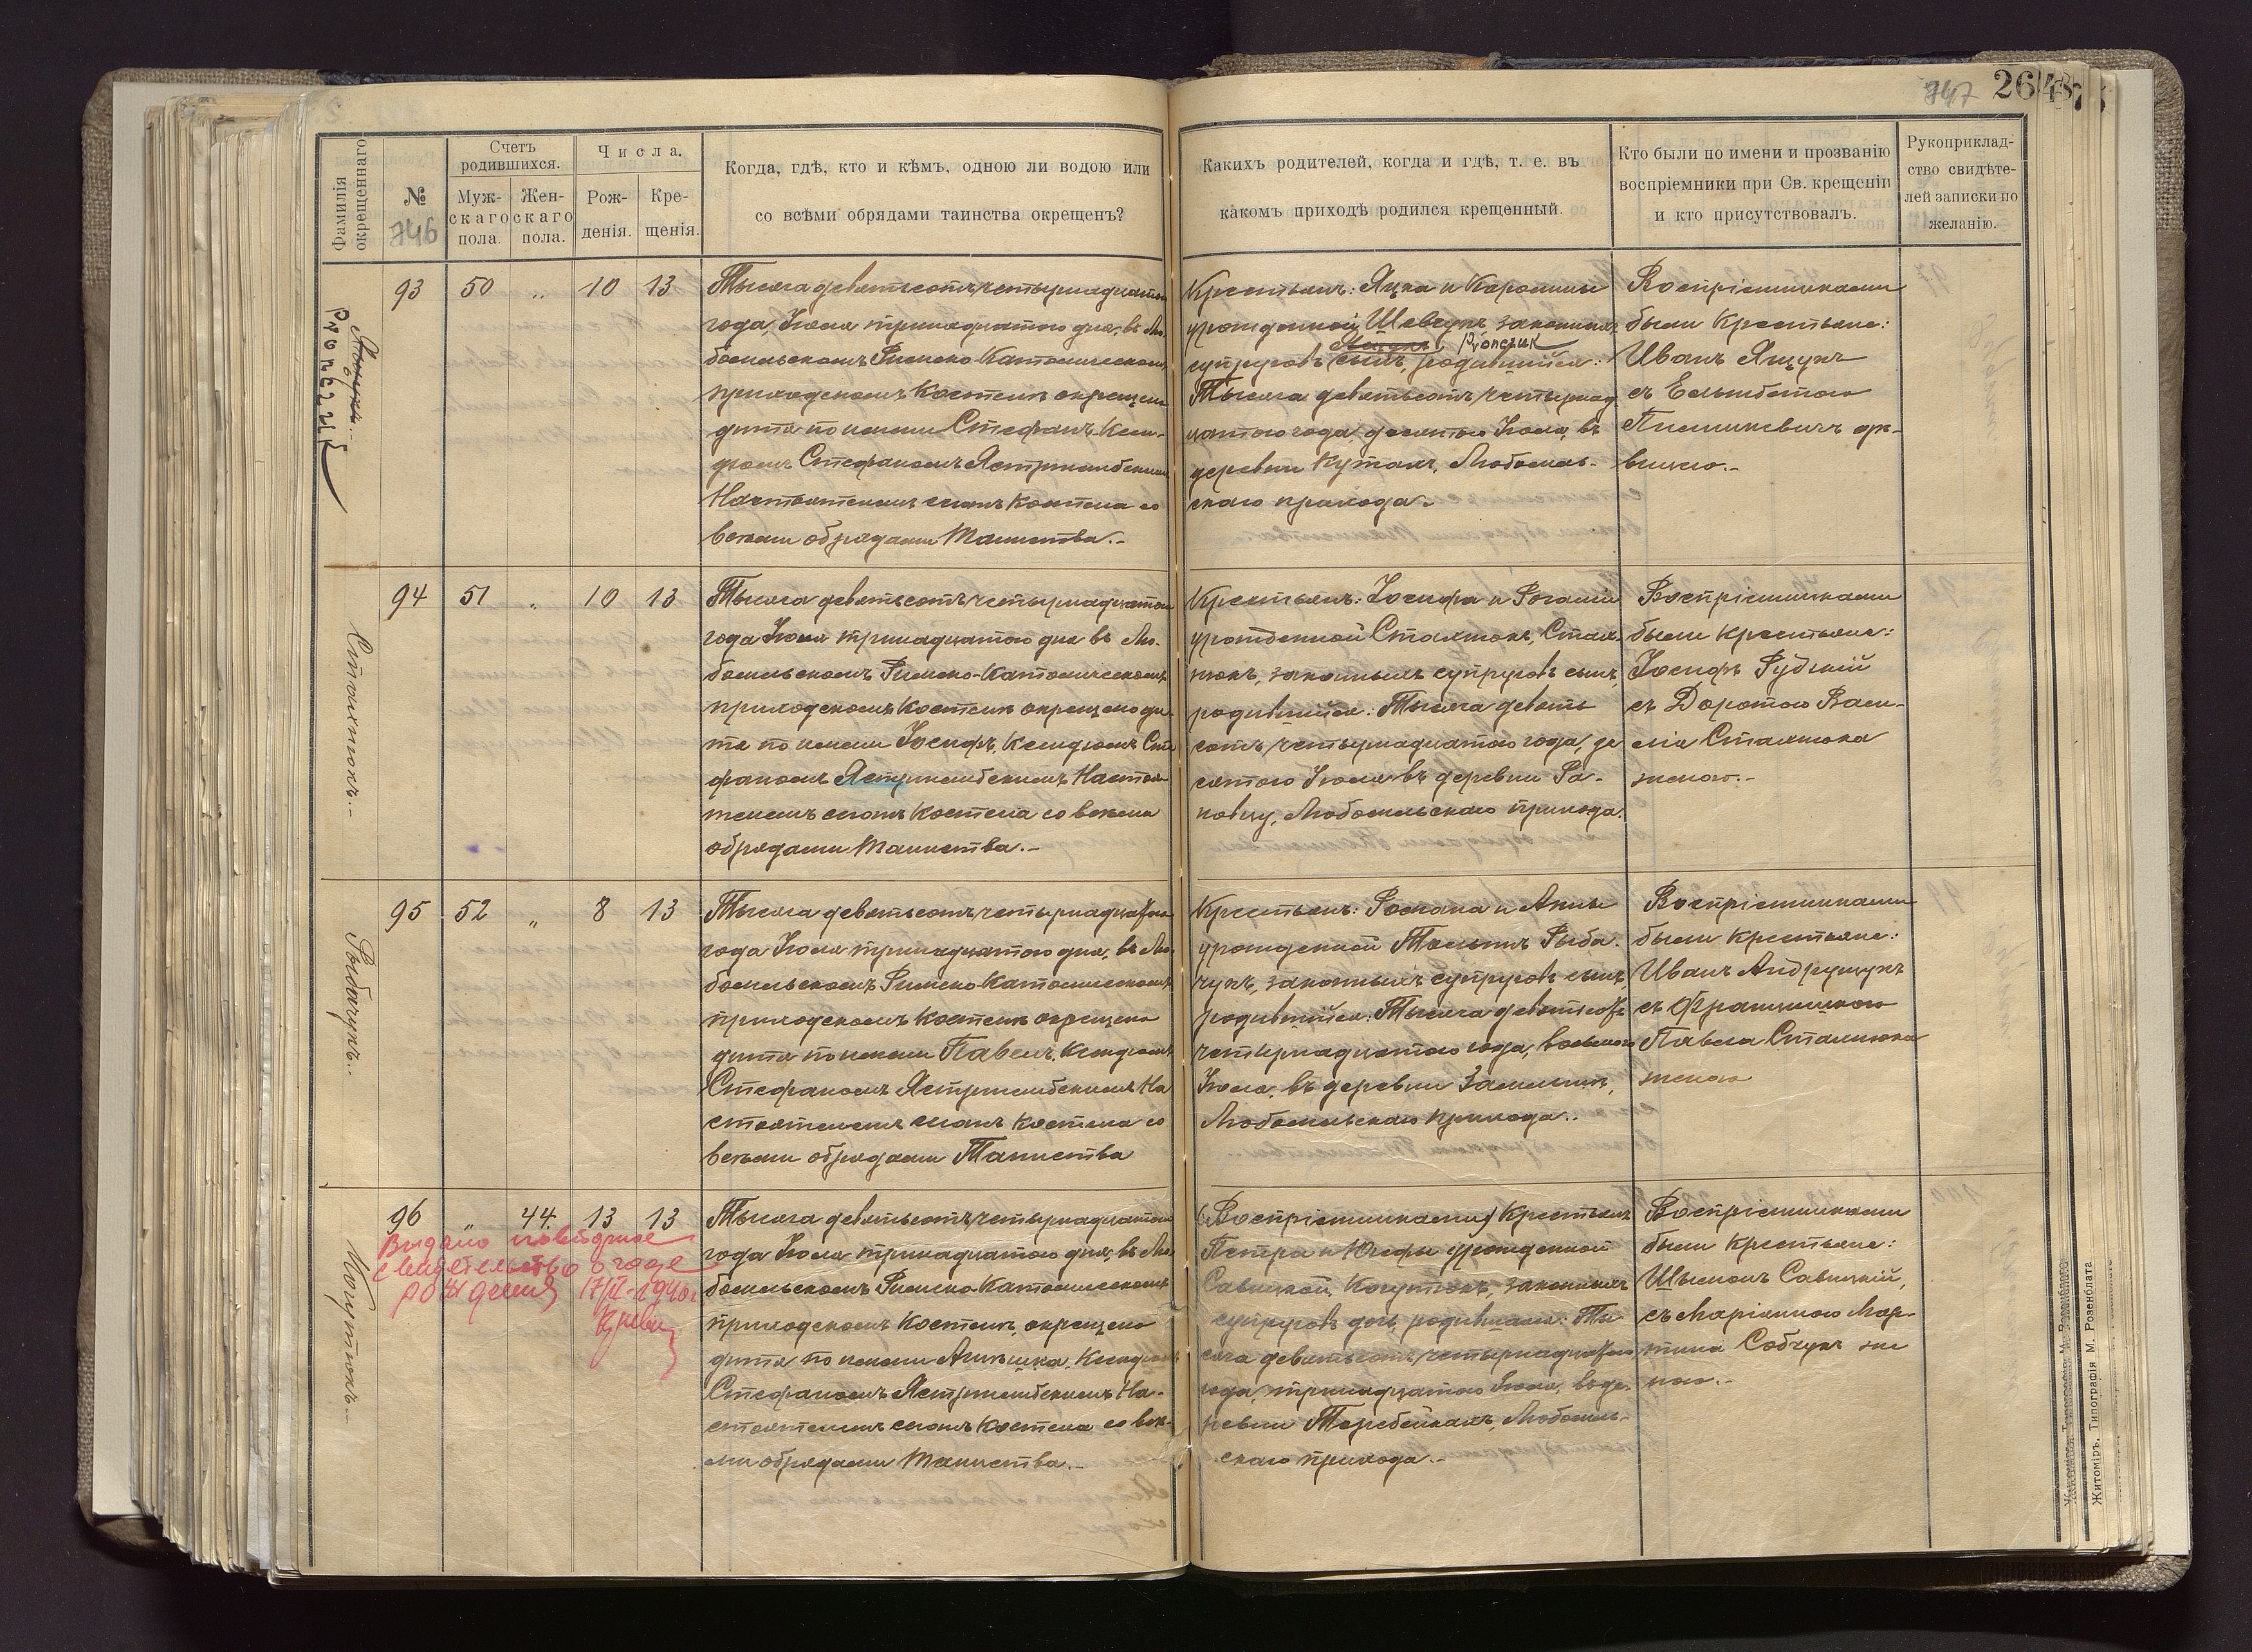 747 26
Фамилія окрещеннаго
№
746
Счетъ родившихся.
Муж-
скаго
пола.
Жен-
скаго
пола.
Числа.
Рож-
денія.
Кре-
щенія.
Когда, гдѣ, кто и кѣмъ, одною ли водою или
со всѣми обрядами таинства окрещенъ?
Какихъ родителей, когда и гдѣ, т. е. въ
какомъ приходѣ родился крещенный.
Кто были по имени и прозванію
воспріемники при Св. крещеніи
и кто присутствовалъ.
Рукоприклад-
ство свидѣте-
лей записки по
желанію.
93 50 " 10 13
Тысяча девятьсотъ четырнадцатого
года, Іюля тринадцатого дня, въ Лю-
бомльскомъ Римско-Католическомъ
приходскомъ Костелѣ окрещено
дитя по имени Стефанъ, Ксен-
дзомъ Стефаномъ Ястржембскимъ
Настоятелемъ сего Костела со
всѣми обрядами Таинства.-
Крестьянъ: Яцка и Каролины
урожденной Шевчукъ, законныхъ
Prończuk
супруговъ сынъ, родившійся:
Тысяча девятьсотъ четырнад-
цатого года, десятого Іюля, въ
деревни Кутахъ, Любомль-
скаго прихода.
Воспріемниками
были Крестьяне:
Иванъ Ящукъ
съ Ельжбетою
дѣ-
вицею.-
94 51 " 10 13
Стахнюкъ.-
Тысяча девятьсотъ четырнадцатого
года Іюля тринадцатого дня въ Лю-
бомльскомъ Римско-Католическомъ
приходскомъ Костелѣ окрещено ди-
тя по имени Іосифъ, Ксендзомъ Сте-
фаномъ Ястржембскимъ Настоя-
телемъ сего Костела со всѣми
обрядами Таинства.-
Крестьянъ: Іосифа и Розаліи
урожденной Стахнюкъ, Стах-
нюкъ, законныхъ супруговъ сынъ,
родившійся: Тысяча девять
сотъ четырнадцатого года, де
сятого Іюля въ деревни Ра-
Любомльскаго прихода.
Воспріемниками
были Крестьяне:
Іосифъ Рудзкій
съ Доротою Васи-
лія Стахнюка
женою.-
95 52 " 8 13
Рыбачукъ.-
Тысяча девятьсотъ четырнадцатого
года Іюля тринадцатого дня, въ Лю-
бомльскомъ Римско-Католическомъ
приходскомъ Костелѣ окрещено
дитя по имени Павелъ, Ксендзомъ
Стефаномъ Ястржембскимъ На
стоятелемъ сего Костела со
всѣми обрядами Таинства
Крестьянъ: Романа и Анны
урожденной Рыба-
чукъ, законныхъ супруговъ сынъ,
родившійся: Тысяча девятьсотъ
четырнадцатого года, восьмого
Іюля, въ деревни
Любомльскаго прихода.
Воспріемниками
были Крестьяне:
Иванъ Андрущукъ
съ Францишкою
Павла Стахнюка
женою
96 " 44. 13 13
Выдано повторное
свидетельство о годе
рождения 17/II-1940г
Когутюкъ.-
Тысяча девятьсотъ четырнадцатого
года Іюля тринадцатого дня, въ Лю-
бомльскомъ Римско-Католическомъ
приходскомъ Костелѣ, окрещено
дитя по имени Анѣшка, Ксендзомъ
Стефаномъ Ястржембскимъ На-
стоятелемъ сего Костела со всѣ-
ми обрядами Таинства.-
(Воспріемниками) Крестьянъ
Петра и Юзефы урожденной
Савицкой, Когутюкъ, законныхъ
супруговъ дочь, родившаяся: Ты
сяча девятьсотъ четырнадцатого
года, тринадцатого Іюля, въ де-
ревни Теребейкахъ, Любомль-
скаго прихода.-
Воспріемниками
были Крестьяне:
Шымонъ Савицкій,
съ Маріянною Мар-
тина Собчукъ же
ною.-
Житоміръ, Типографія М. Розенблата